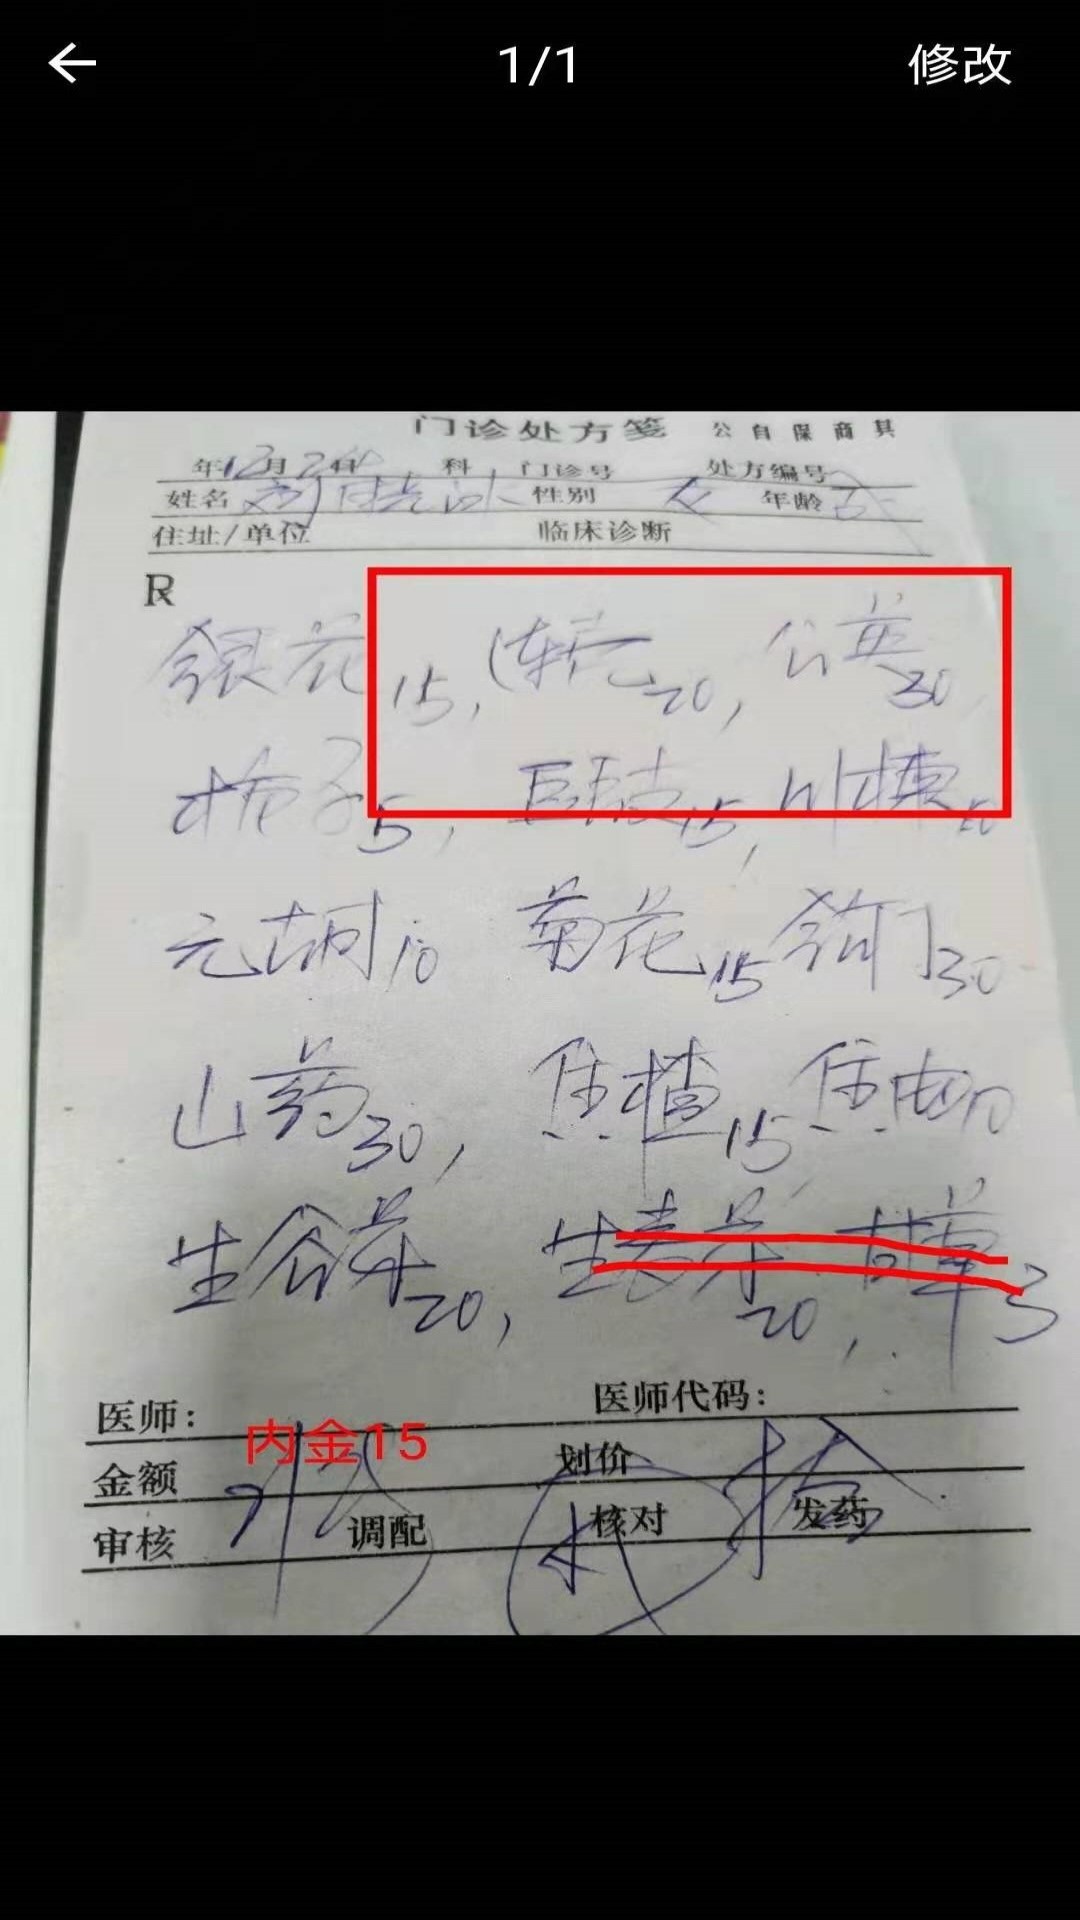 1/1 修改
门诊处方笺 公 自 保 商 其
年12月24日 科 门诊号 处方编号
姓名 性别 女 年龄
住址/单位 临床诊断
R
银花15, 连壳20, 公英30,
栀子5, 15, 川楝10
元胡10 菊花15 钩丁30
山药30, 焦楂15 焦曲10
生谷芽20, 生麦芽20, 甘草3
医师: 医师代码:
内金15
金额 划价
审核 调配 核对 发药